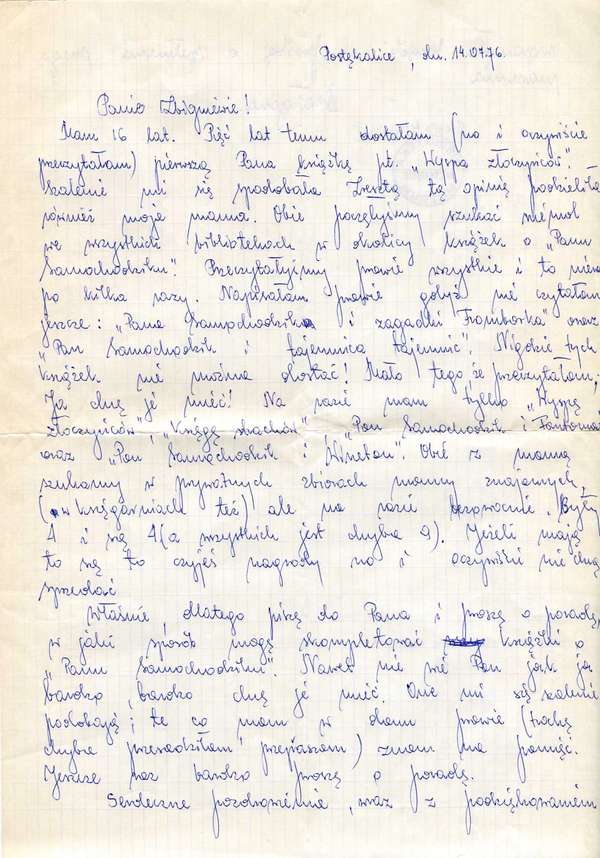 Postękalice, dn. 14.07.76.
Panie Zbigniewie!
Mam 16 lat. Pięć lat temu dostałam (no i oczywiście
przeczytałam) pierwszą Pana książkę pt. „Wyspa złoczyńców".
Szalenie mi się spodobała. Zresztą tą opinię podzieliła
również moja mama. Obie poczęłyśmy szukać niemal
we wszystkich bibliotekach w okolicy książek o „Panu
Samochodziku". Przeczytałyśmy prawie wszystkie i to nieraz
po kilka razy. Napisałam prawie gdyż nie czytałam
jeszcze: „Pana Samochodzika i zagadki Fromborka" oraz
„Pan Samochodzik i tajemnica tajemnic". Nigdzie tych
książek nie można dostać! Mało tego że przeczytałam,
Ja chcę je mieć! Na razie mam tylko „Wyspę
złoczyńców", „Księgę strachów", „Pan Samochodzik i Fantomas"
oraz „Pan Samochodzik i Winetou". Obie z mamą
szukamy w prywatnych zbiorach mamy znajomych,
(w księgarniach też) ale na razie bezowocnie. Były
4 i są 4 (a wszystkich jest chyba 9). Jeżeli mają
to są to czyjeś nagrody no i oczywiście nie chcą
sprzedać
Właśnie dlatego piszę do Pana i proszę o poradę,
w jaki sposób mogę skompletować książki o
„Panu Samochodziku". Nawet nie wie Pan jak ja
bardzo, bardzo chcę je mieć. One mi się szalenie
podobają i te co mam w domu prawie (trochę
chyba przesadziłam przepraszam) znam na pamięć.
Jeszcze raz bardzo proszę o poradę.
Serdeczne pozdrowienia, wraz z podziękowaniem